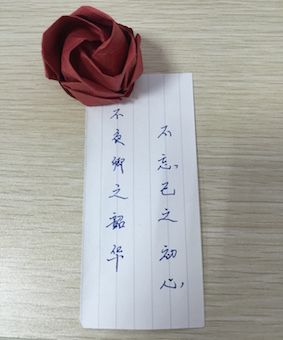 不忘己之初心
不负卿之韶华